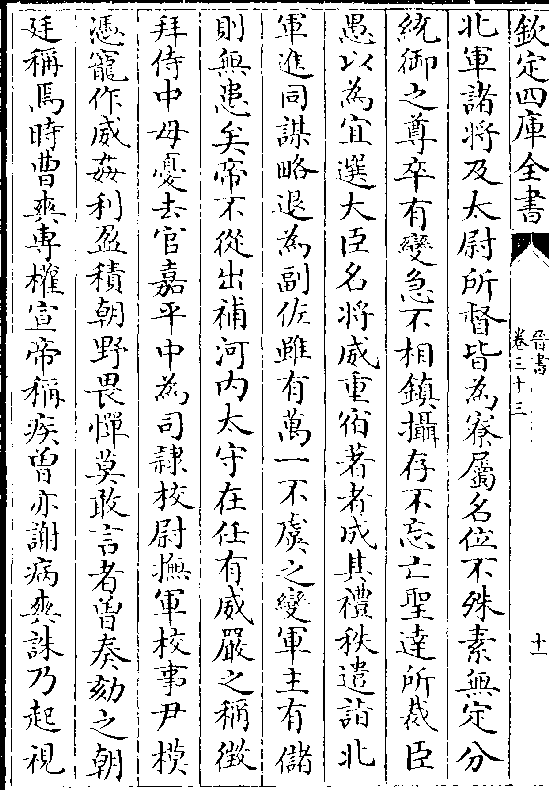 欽定四庫全書
晉書
卷三十三
十一
北軍諸將及太尉所督皆為寮屬名位不殊素無定分
統御之尊卒有變急不相鎮攝存不忘亡聖達所裁臣
愚以為宜選大臣名將威重宿著者成其禮秩遣詣北
軍進同謀略退為副佐雖有萬一不虞之變軍主有儲
則無患矣帝不從出補河内太守在任有威嚴之稱徴
拜侍中母憂去官嘉平中為司隸校尉撫軍校事尹模
憑寵作威姦利盈積朝野畏憚莫敢言者曾奏劾之朝
廷稱焉時曹爽專權宣帝稱疾曾亦謝病爽誅乃起視